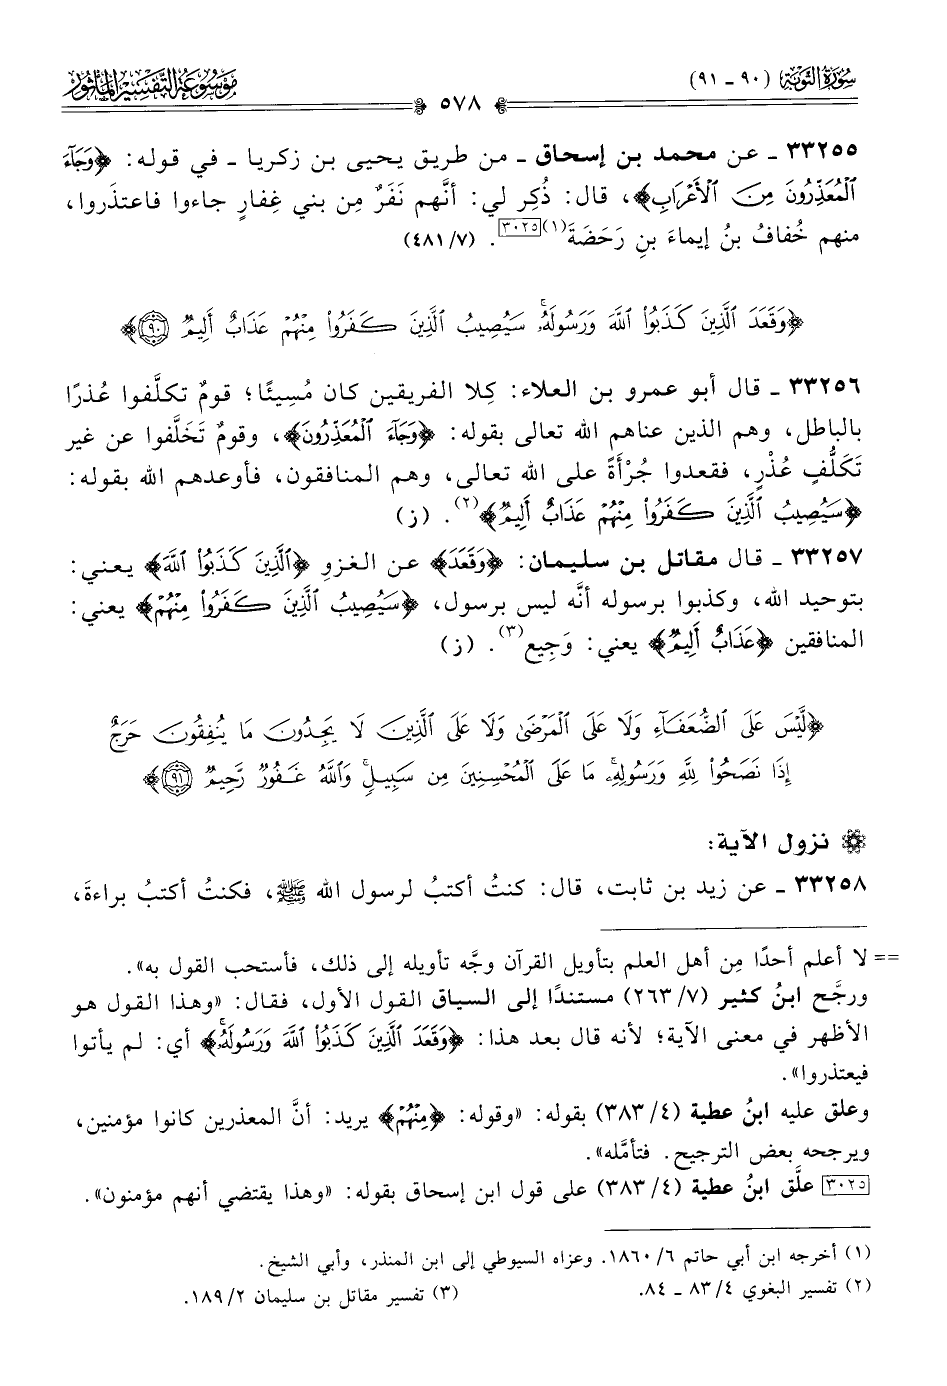 سُورَةُ التَّوْبَةِ (٩٠ - ٩١)
مَوْسُوعَةُ التَّفْسِيرِ المَأْثُورِ
٥٧٨
٣٣٢٥٥ - عن محمد بن إسحاق - من طريق يحيى بن زكريا - في قوله: ﴿وَجَآءَ
ٱلْمُعَذِّرُونَ مِنَ ٱلْأَعْرَابِ﴾، قال: ذُكِر لي: أنَّهم نَفَرٌ مِن بني غِفارٍ جاءوا فاعتذَروا،
منهم خُفافُ بنُ إيماءَ بنِ رَحَضَةَ(١)[٣٠٢٥]. (٧/ ٤٨١)
﴿وَقَعَدَ ٱلَّذِينَ كَذَبُوا۟ ٱللَّهَ وَرَسُولَهُۥۚ سَيُصِيبُ ٱلَّذِينَ كَفَرُوا۟ مِنْهُمْ عَذَابٌ أَلِيمٌ ٩٠﴾
٣٣٢٥٦ - قال أبو عمرو بن العلاء: كِلا الفريقين كان مُسِيئًا؛ قومٌ تكلَّفوا عُذرًا
بالباطل، وهم الذين عناهم الله تعالى بقوله: ﴿وَجَآءَ ٱلْمُعَذِّرُونَ﴾، وقومٌ تَخَلَّفوا عن غير
تَكَلُّفِ عُذْرٍ، فقعدوا جُرْأَةً على الله تعالى، وهم المنافقون، فأوعدهم الله بقوله:
﴿سَيُصِيبُ ٱلَّذِينَ كَفَرُوا۟ مِنْهُمْ عَذَابٌ أَلِيمٌ﴾(٢). (ز)
٣٣٢٥٧ - قال مقاتل بن سليمان: ﴿وَقَعَدَ﴾ عن الغزوِ ﴿ٱلَّذِينَ كَذَبُوا۟ ٱللَّهَ﴾ يعني:
بتوحيد الله، وكذبوا برسوله أنَّه ليس برسول، ﴿سَيُصِيبُ ٱلَّذِينَ كَفَرُوا۟ مِنْهُمْ﴾ يعني:
المنافقين ﴿عَذَابٌ أَلِيمٌ﴾ يعني: وَجِيع(٣). (ز)
﴿لَّيْسَ عَلَى ٱلضُّعَفَآءِ وَلَا عَلَى ٱلْمَرْضَىٰ وَلَا عَلَى ٱلَّذِينَ لَا يَجِدُونَ مَا يُنفِقُونَ حَرَجٌ
إِذَا نَصَحُوا۟ لِلَّهِ وَرَسُولِهِۦۚ مَا عَلَى ٱلْمُحْسِنِينَ مِن سَبِيلٍۚ وَٱللَّهُ غَفُورٌ رَّحِيمٌ ٩١﴾
نزول الآية:
٣٣٢٥٨ - عن زيد بن ثابت، قال: كنتُ أكتبُ لرسول الله ﷺ، فكنتُ أكتبُ براءةَ،
== لا أعلم أحدًا مِن أهل العلم بتأويل القرآن وجَّه تأويله إلى ذلك، فأستحب القول به».
ورجَّح ابنُ كثير (٧/ ٢٦٣) مستندًا إلى السياق القول الأول، فقال: «وهذا القول هو
الأظهر في معنى الآية؛ لأنه قال بعد هذا: ﴿وَقَعَدَ ٱلَّذِينَ كَذَبُوا۟ ٱللَّهَ وَرَسُولَهُۥۚ﴾ أي: لم يأتوا
فيعتذروا».
وعلق عليه ابنُ عطية (٤/ ٣٨٣) بقوله: «وقوله: ﴿مِنْهُمْ﴾ يريد: أنَّ المعذرين كانوا مؤمنين،
ويرجحه بعض الترجيح. فتأمَّله».
[٣٠٢٥] علَّق ابنُ عطية (٤/ ٣٨٣) على قول ابن إسحاق بقوله: «وهذا يقتضي أنهم مؤمنون».
(١) أخرجه ابن أبي حاتم ٦/ ١٨٦٠. وعزاه السيوطي إلى ابن المنذر، وأبي الشيخ.
(٢) تفسير البغوي ٤/ ٨٣ - ٨٤.
(٣) تفسير مقاتل بن سليمان ٢/ ١٨٩.